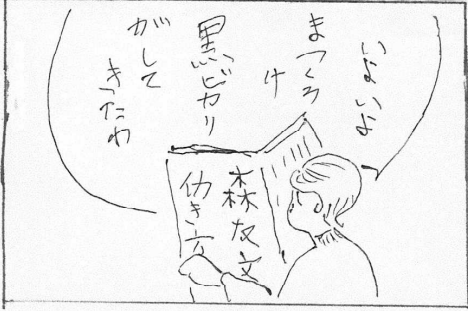 いよいよ
まっくろ
け
黒ビカリ
がして
きたわ
森友文